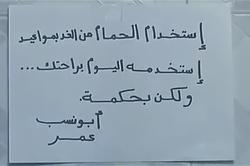 إستخدام الحمام من الغد بمواعيد
إستخدمه اليوم براحتك...
ولكن بحكمة.
أبونسب
عمر